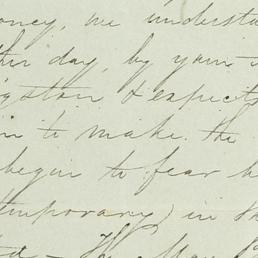 oney, we understa
this day, by yours
ngston & expects
in to make. the
begun to fear h
temporary) in th